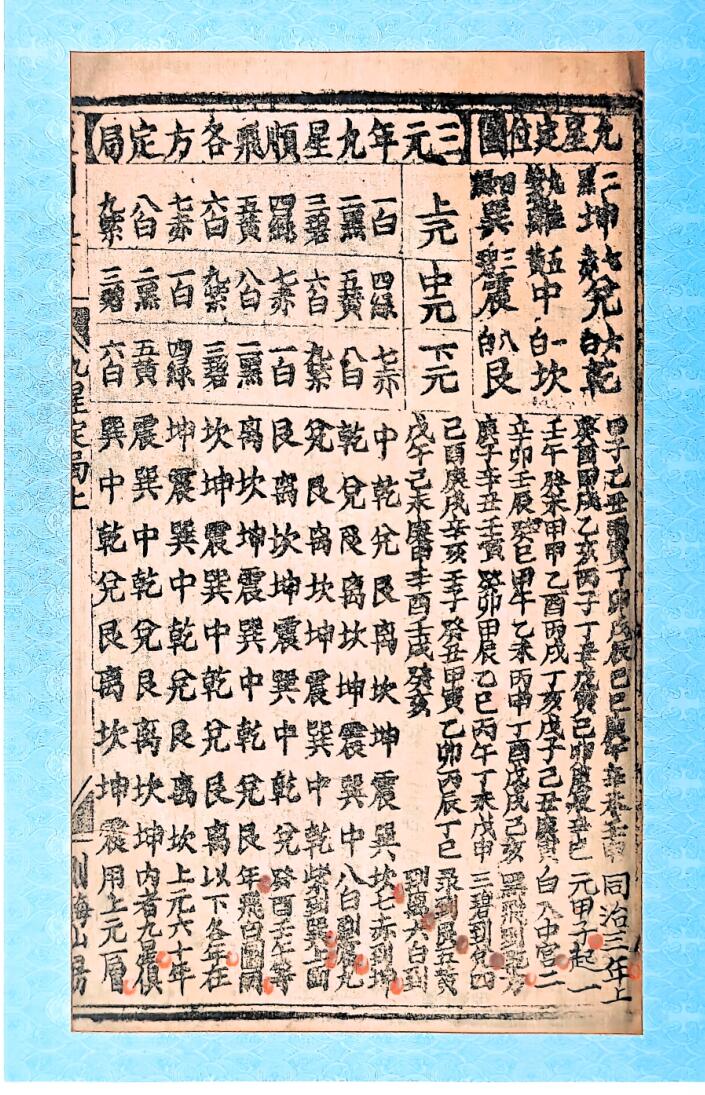 九星定位圖
二黑坤七赤兌六白乾
九紫離五黃中一白坎
四綠巽三碧震八白艮
甲子乙丑丙寅丁卯戊辰己巳庚午辛未壬申
癸酉甲戌乙亥丙子丁丑戊寅己卯庚辰辛巳
壬午癸未甲申乙酉丙戌丁亥戊子己丑庚寅
辛卯壬辰癸巳甲午乙未丙申丁酉戊戌己亥
庚子辛丑壬寅癸卯甲辰乙巳丙午丁未戊申
己酉庚戌辛亥壬子癸丑甲寅乙卯丙辰丁巳
戊午己未庚申辛酉壬戌癸亥
三元年九星順飛各方定局
上元 中元 下元
一白 四綠 七赤 中乾兌艮离坎坤震巽
二黑 五黃 八白 乾兌艮离坎坤震巽中
三碧 六白 九紫 兌艮离坎坤震巽中乾
四綠 七赤 一白 艮离坎坤震巽中乾兌
五黃 八白 二黑 离坎坤震巽中乾兌艮
六白 九紫 三碧 坎坤震巽中乾兌艮离
七赤 一白 四綠 坤震巽中乾兌艮离坎
八白 二黑 五黃 震巽中乾兌艮离坎坤
九紫 三碧 六白 巽中乾兌艮离坎坤震
同治三年上
元甲子起一
白入中宮二
黑飛到乾方
三碧到兌四
彔到艮五黃
到離六白到
坎七赤到坤
八白到震九
紫到巽上圖
癸酉壬午等
年飛白圖同
以下各年在
上元六十年
內者九星俱
用上元層
九星定局上
海山房